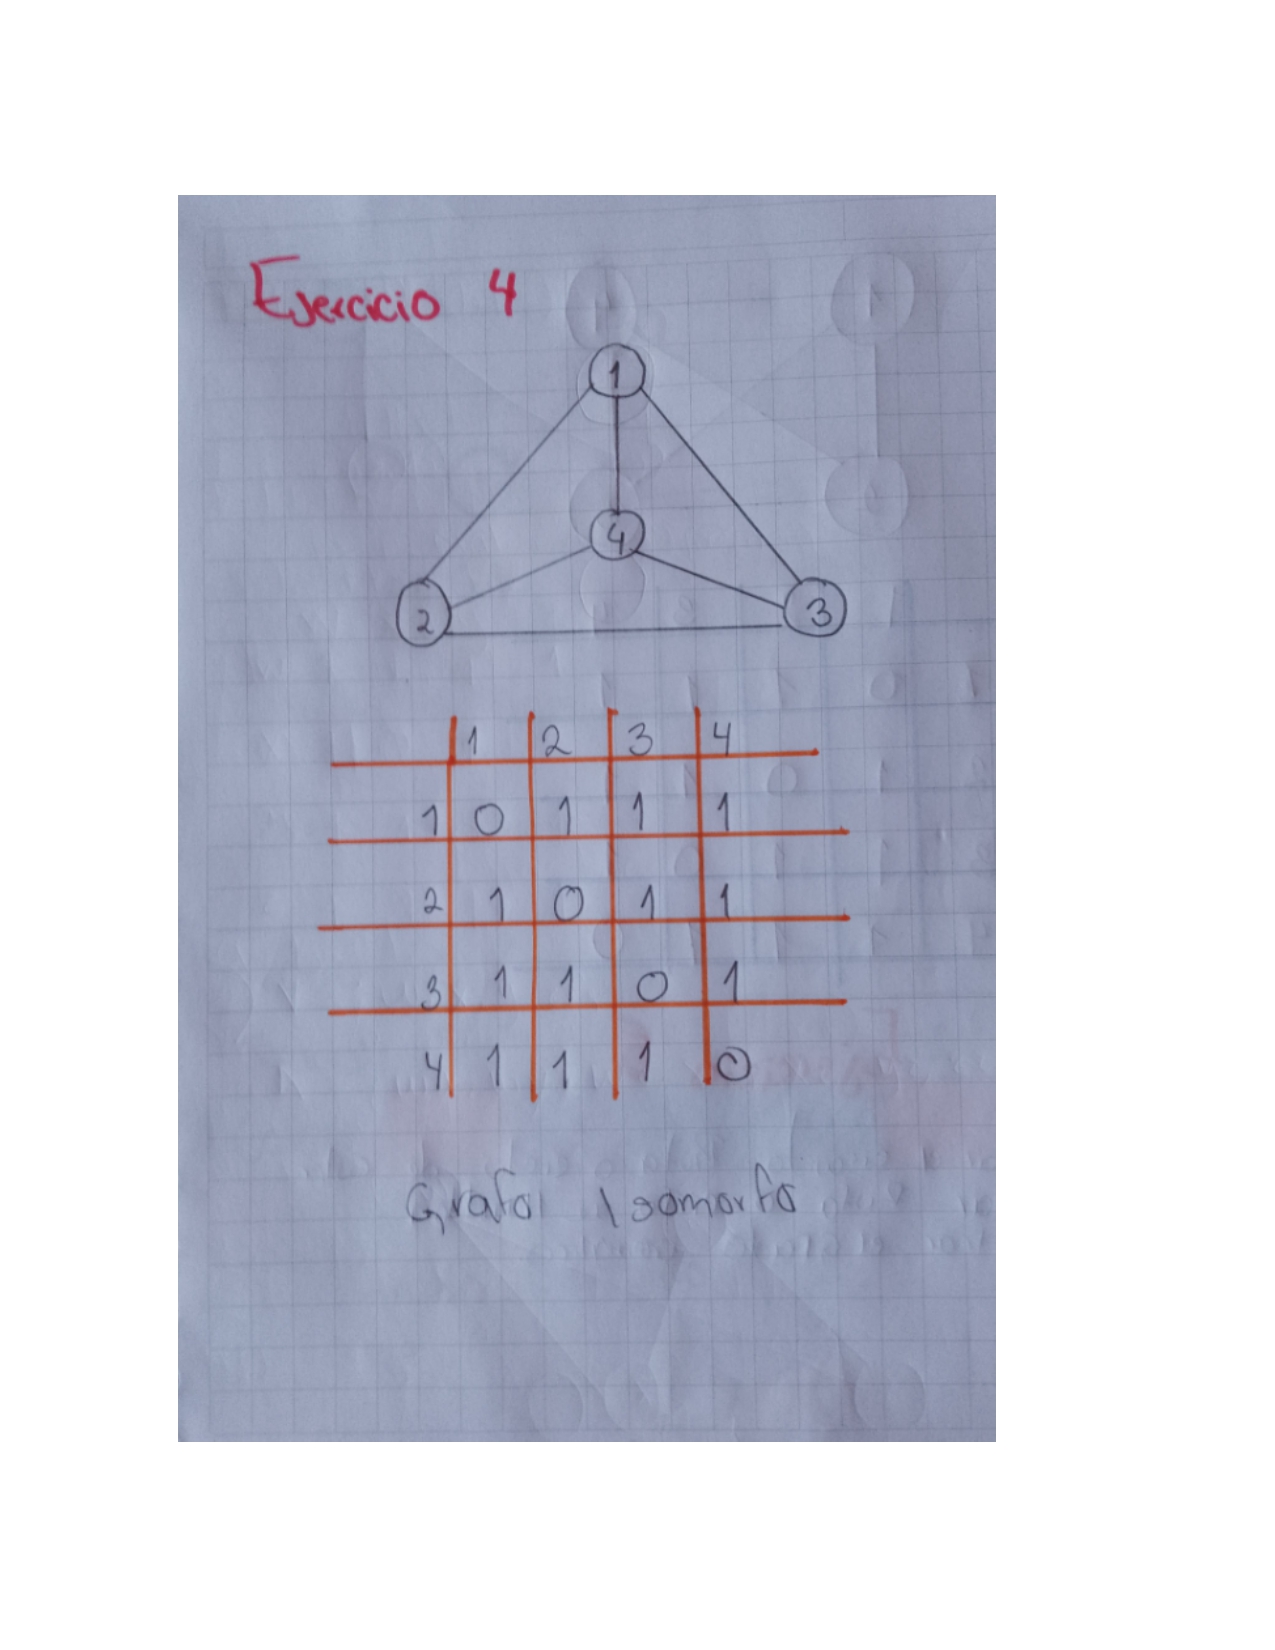 Ejercicio 4
1
4
2 3
1 2 3 4
1 0 1 1 1
2 1 0 1 1
3 1 1 0 1
4 1 1 1 0
Grafo Isomorfo